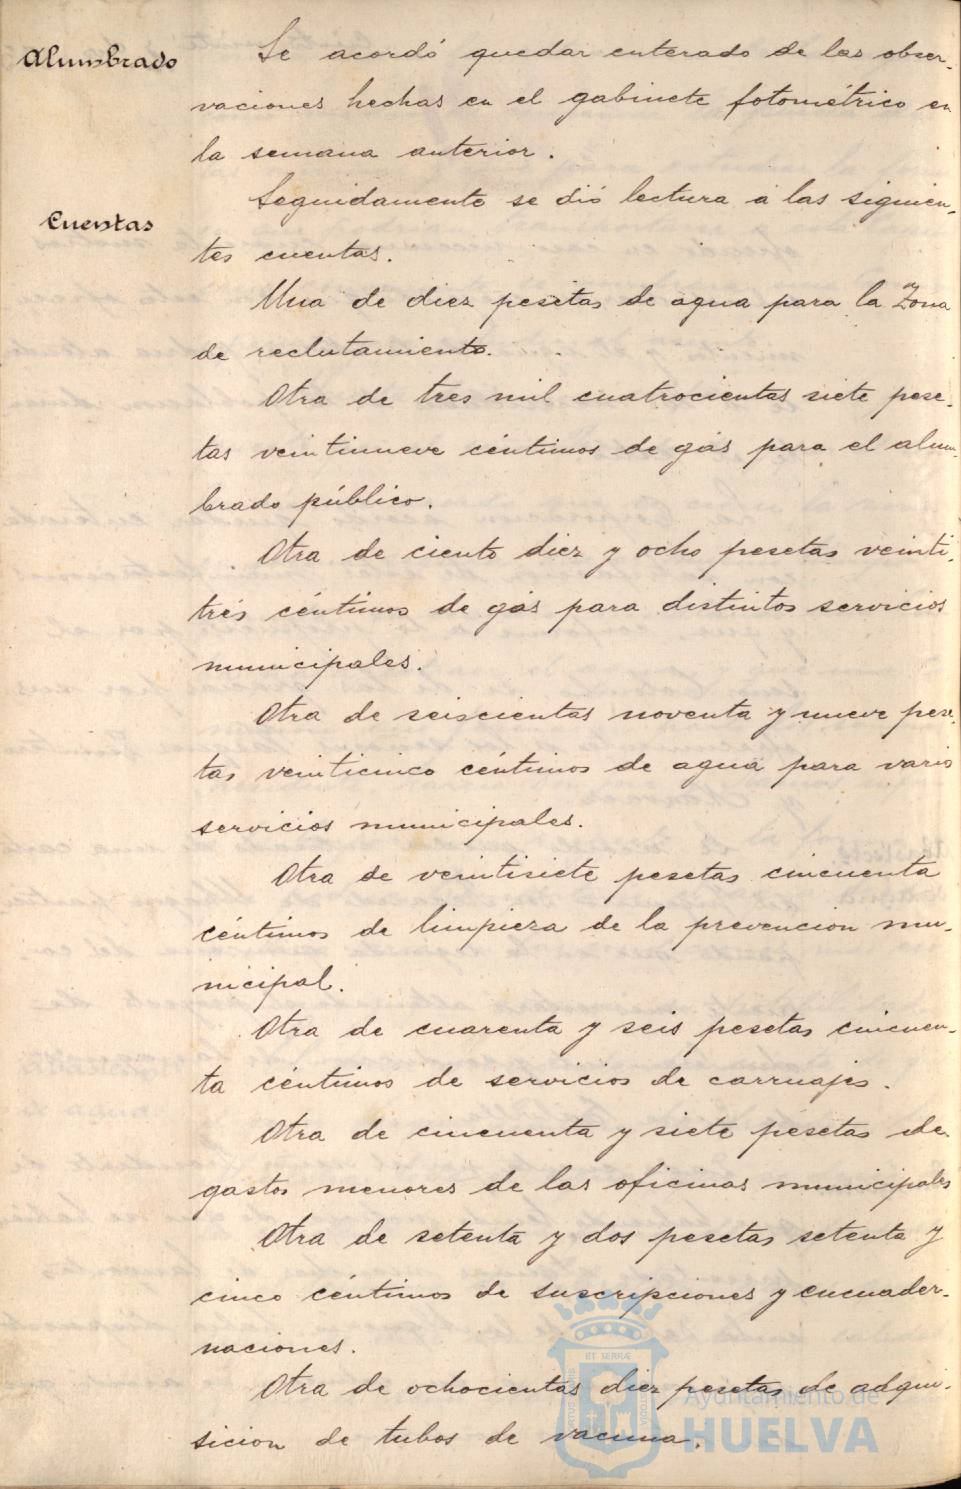 Alumbrado
Se acordó quedar enterado de las obser-
vaciones hechas en el gabinete fotométrico en
la semana anterior.
Cuentas
Seguidamente se dió lectura á las siguien-
tes cuentas.
Una de diez pesetas de agua para la Zona
de reclutamiento.
Otra de tres mil cuatrocientas siete pese-
tas veintinueve céntimos de gás para el alum-
brado público.
Otra de ciento diez y ocho pesetas veinti-
trés céntimos de gás para distintos servicios
municipales.
Otra de seiscientas noventa y nueve pese-
tas veinticinco céntimos de agua para varios
servicios municipales.
Otra de veintisiete pesetas cincuenta
céntimos de limpieza de la prevencion mu-
nicipal.
Otra de cuarenta y seis pesetas cincuen-
ta céntimos de servicios de carruajes.
Otra de cincuenta y siete pesetas de
gastos menores de las oficinas municipales
Otra de setenta y dos pesetas setenta y
cinco céntimos de suscripciones y encuader-
naciones.
Otra de ochocientas diez pesetas de adqui-
sicion de tubos de vacuna.
ET SERRÆ
CUSTODIA
Ayuntamiento de
HUELVA